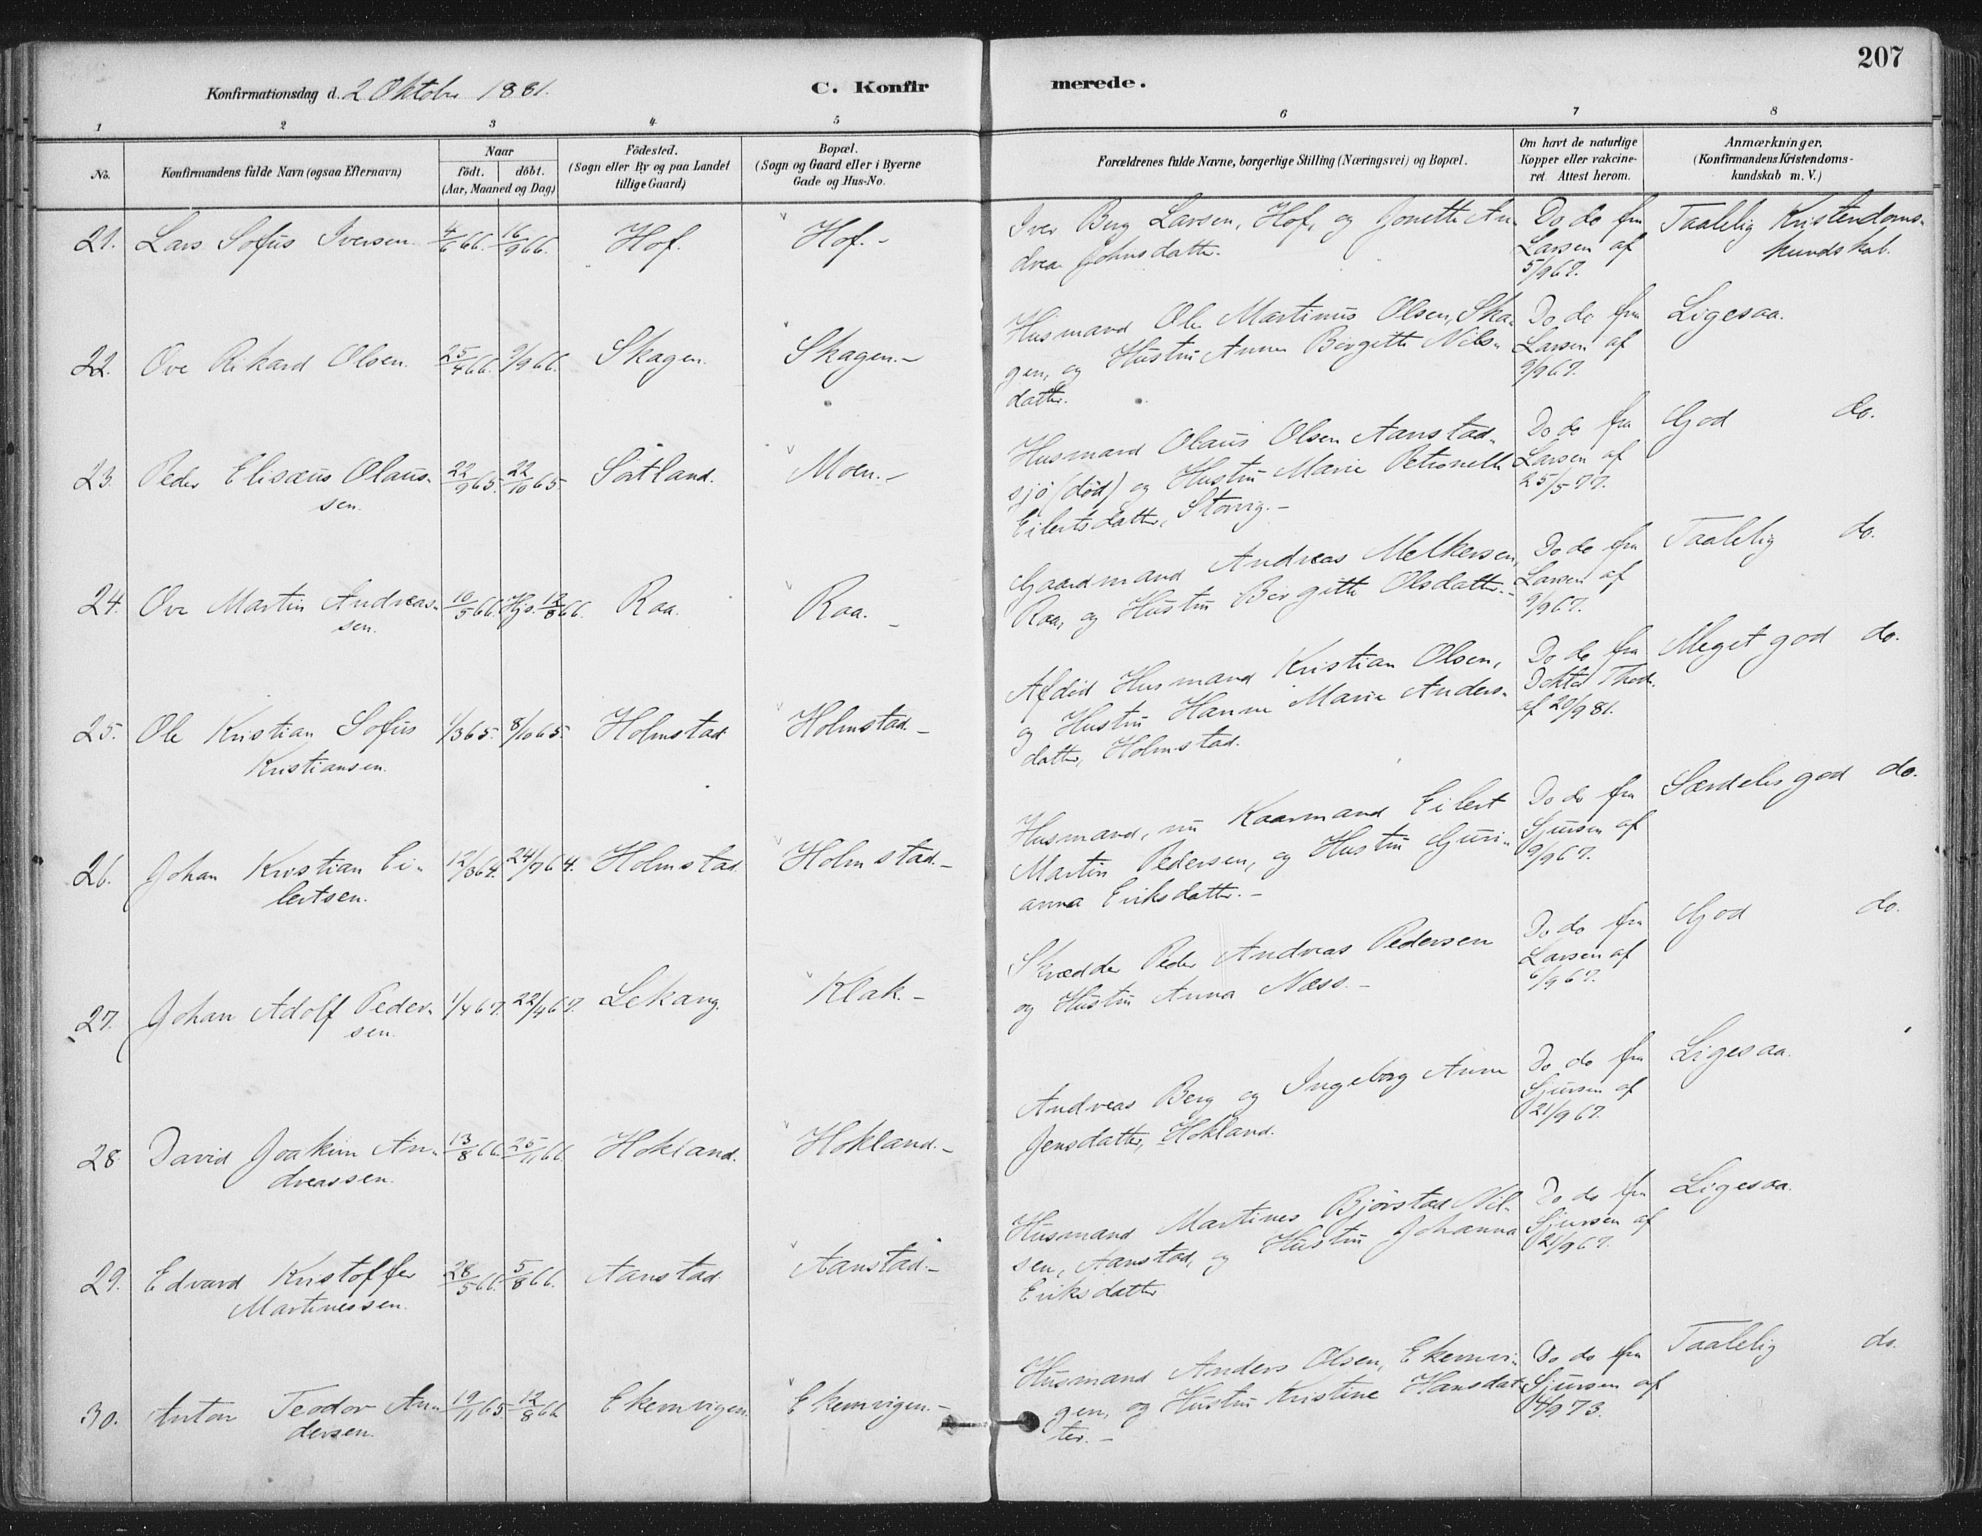 207
Konfirmationsdag d. 2 Oktober 1881.
C. Konfir merede.
1 2 3 4 5 6 7 8
No.
Konfirmandens fulde Navn (ogsaa Efternavn)
Naar
født. døbt.
(Aar, Maaned og Dag)
Födested.
(Sogn eller By og paa Landet
tillige Gaard)
Bopæl.
(Sogn og Gaard eller i Byerne
Gade og Hus-No.
Forældrenes fulde Navne, borgerlige Stilling (Næringsvei) og Bopæl.
Om havt de naturlige
Kopper eller vakcine-
ret. Attest herom.
Anmærkninger.
(Konfirmandens Kristendoms-
kundskab m. V.)
21. Lars Sofus Iversen. 4/6 66. 16/9 66. Hof. Hof.-
Iver Berg Larsen, Hof, og Jonette An-
drea Johnsdatter.
Do do fra
Larsen af
5/9 67.
Taalelig Kristendoms-
kundskab.
22. Ove Rikard Olsen. 25/4 66. 9/9 66. Skagen. Skagen.-
Husmand Ole Martinus Olsen, Ska-
gen, og Hustru Anne Bergitte Nils-
datter.
Do do fra
Larsen af
9/9 67.
Ligesaa.
23. Peder Elisæus Olaus-
sen.
22/9 65. 22/10 65 Sortland. Moen.-
Husmand Olaus Olsen Aanstad-
sjø (død) og Hustru Marie Petronelle
Eilertsdatter, Storvig.-
Do do fra
Larsen af
25/5 77.
God do.
24. Ove Martin Andreas-
sen.
10/5 66. Hjs. 12/8 66. Roa. Roa. -
Gaardmand Andreas Melkersen,
Roa, og Hustru Bergitte Olsdatter.-
Do do fra
Larsen af
9/9 67.
Taalelig do.
25. Ole Kristian Sofus
Kristiansen.
1/3 65. 8/10 65. Holmstad Holmstad.-
Afdød Husmand Kristian Olsen,
og Hustru Hanne Marie Anders-
datter, Holmstad.
Do do fra
Doktor Thode
af 20/9 81.
Meget god do.
26. Johan Kristian Ei-
lertsen.
12/3 64. 24/7 64. Holmstad. Holmstad.-
Husmand, nu Kaarmand Eilert
Martin Pedersen, og Hustru Guri-
anna Eriksdatter.-
Do do fra
Sjursen af
9/9 67.
Særdeles god do.
27. Johan Adolf Peder-
sen.
1/4 67. 22/4 67. Lekang. Klak.-
Skrædder Peder Andreas Pedersen
og Hustru Anna Næss.-
Do do fra
Larsen af
6/9 67.
God do.
28. David Joakim An-
dreassen.
13/8 66. 25/11 66. Hokland. Hokland.-
Andreas Berg og Ingeborg Anne
Jensdatter, Hokland.
Do do fra
Sjursen af
21/9 67.
Ligesaa.
29. Edvard Kristoffer
Martinessen.
28/5 66. 5/8 66. Aanstad Aanstad.-
Husmand Martines Bjørstad Nil-
sen, Aanstad, og Hustru Johanna
Eriksdatter
Do do fra
Sjursen af
21/9 67.
Ligesaa.
30. Anton Teodor An-
dersen.
19/11 65. 12/8 66 Ekernvigen. Ekernvigen.-
Husmand Anders Olsen, Ekernvi-
gen, og Hustru Kristine Hansdat-
ter.-
Do do fra
Sjursen af
4/9 73.
Taalelig do.